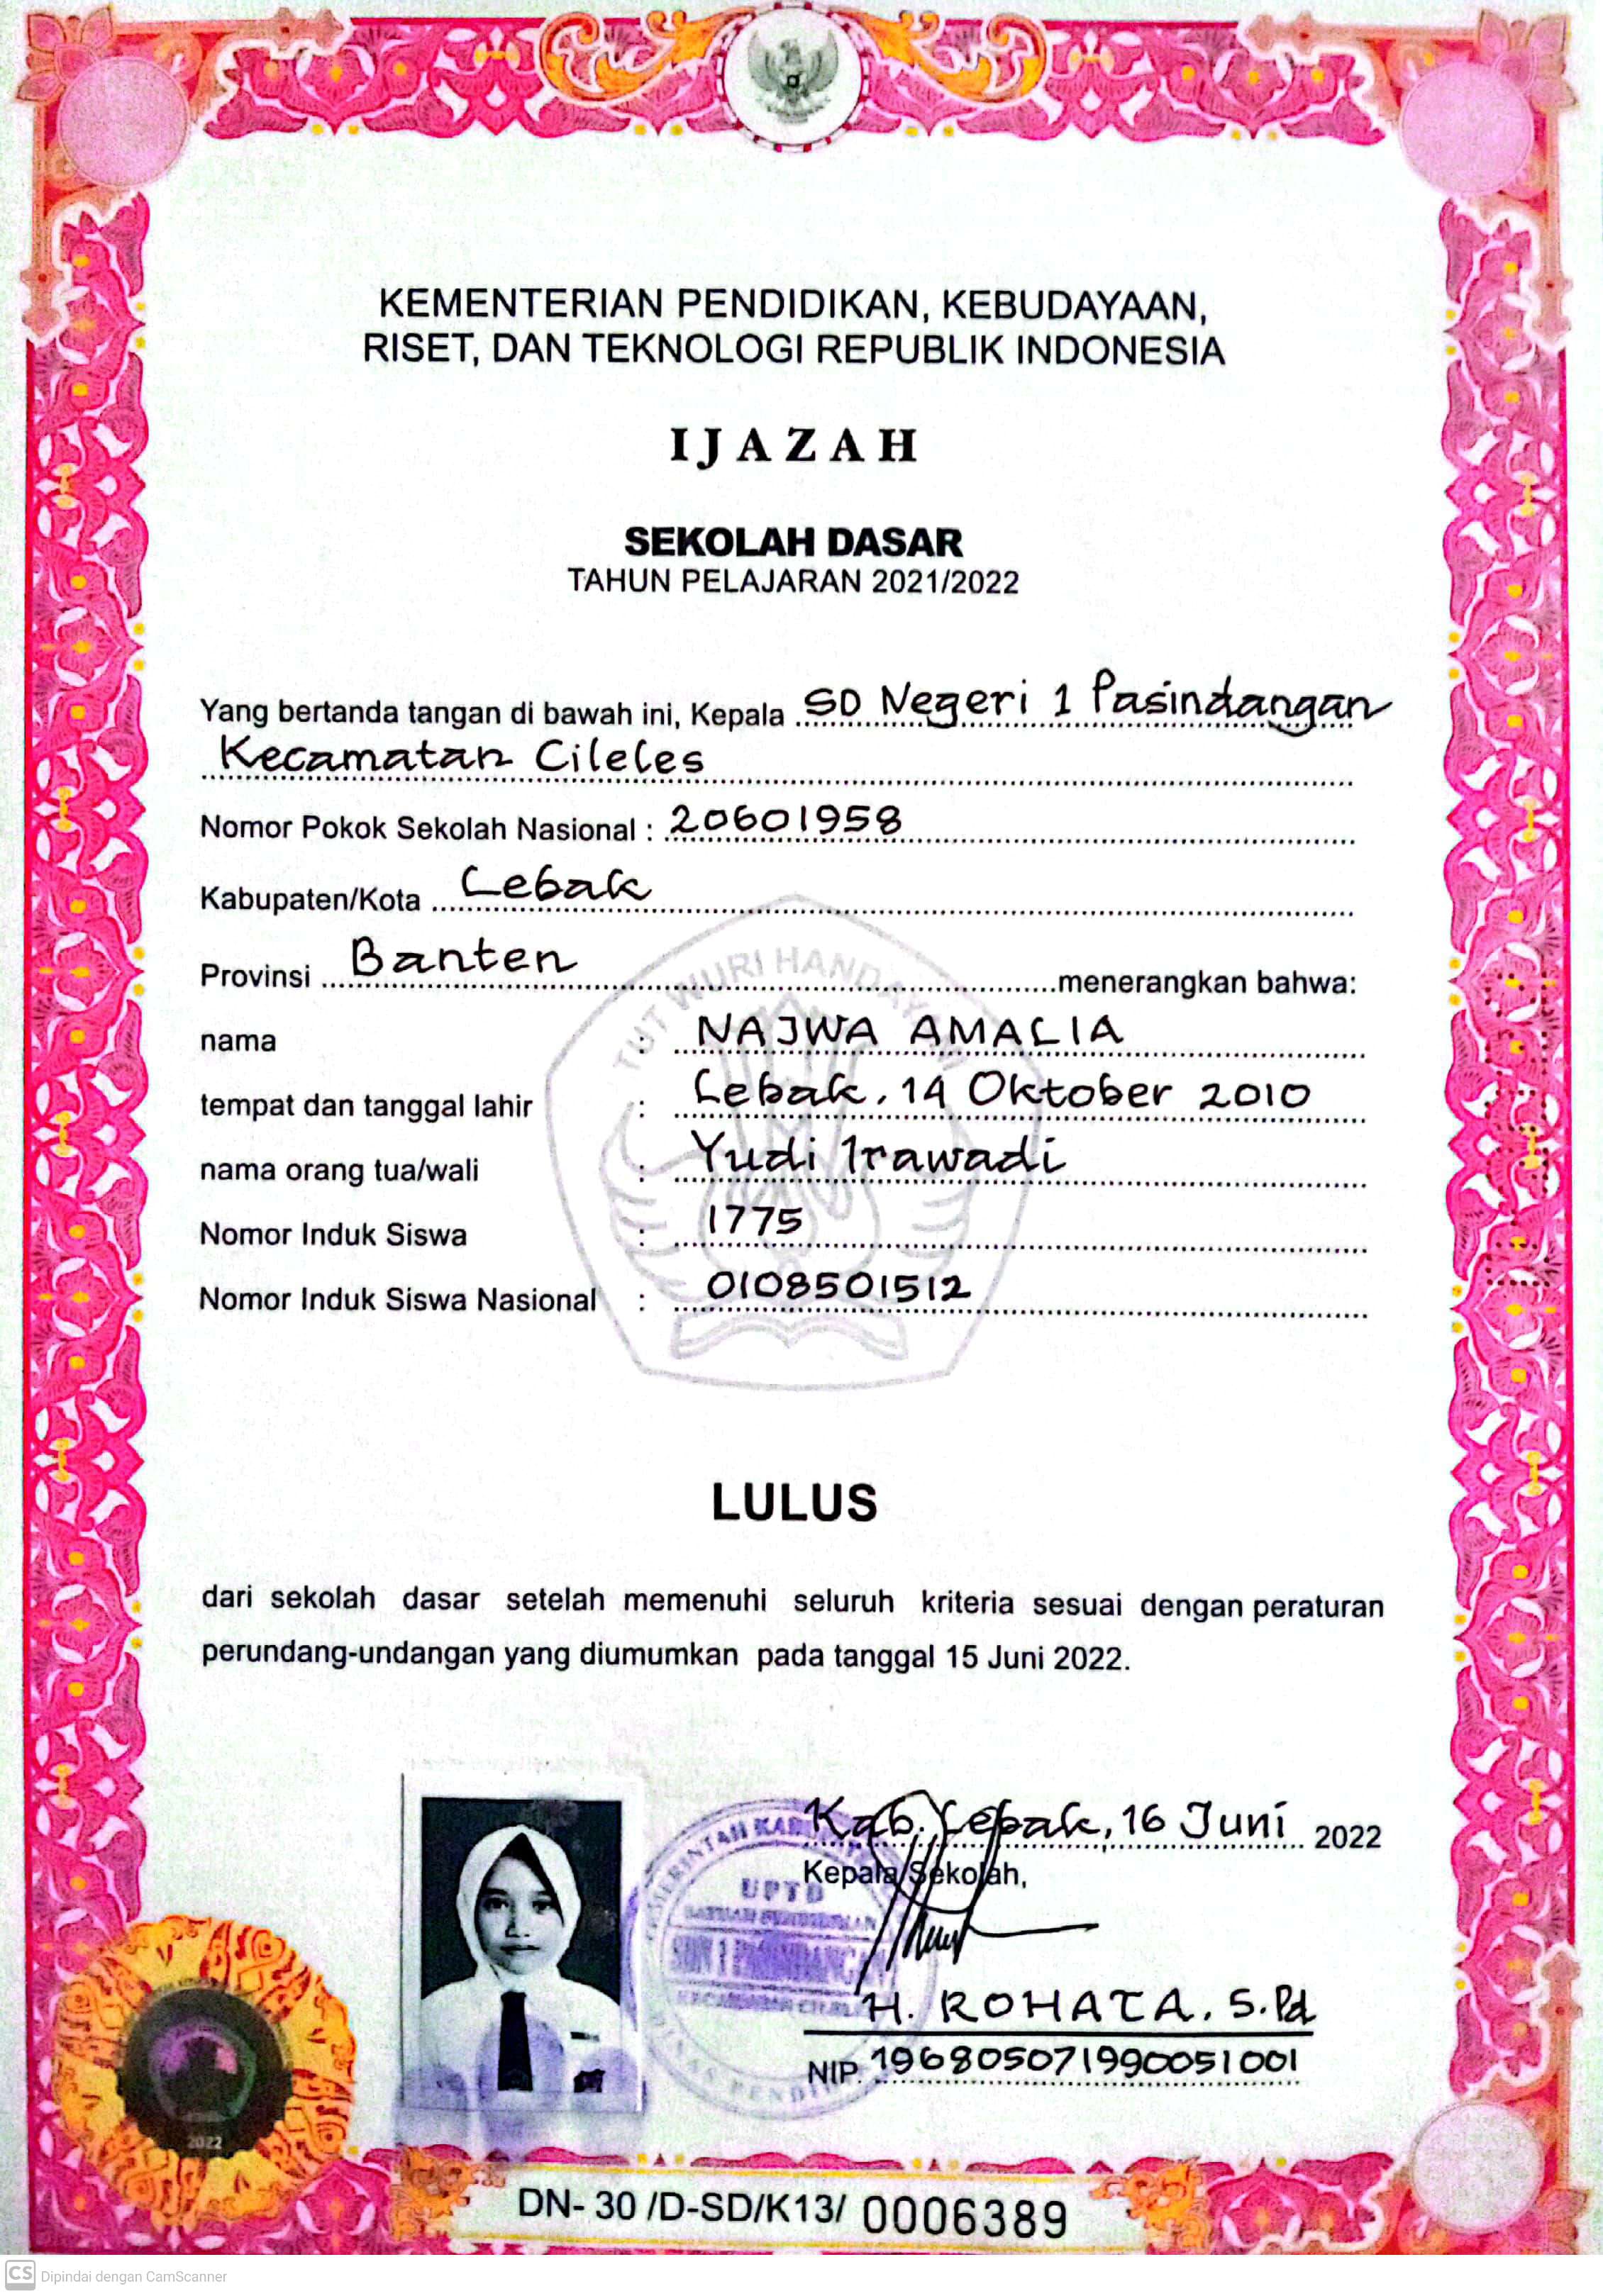 KEMENTERIAN PENDIDIKAN, KEBUDAYAAN,
RISET, DAN TEKNOLOGI REPUBLIK INDONESIA
IJAZAH
SEKOLAH DASAR
TAHUN PELAJARAN 2021/2022
Yang bertanda tangan di bawah ini, Kepala SD Negeri 1 Pasindangan
Kecamatan Cileles
Nomor Pokok Sekolah Nasional : 20601958
Kabupaten/Kota Lebak
Provinsi Banten menerangkan bahwa:
TUT WURI HANDAYANI
nama : NAJWA AMALIA
tempat dan tanggal lahir : Lebak, 14 Oktober 2010
nama orang tua/wali : Yudi Irawadi
Nomor Induk Siswa : 1775
Nomor Induk Siswa Nasional : 0108501512
LULUS
dari sekolah dasar setelah memenuhi seluruh kriteria sesuai dengan peraturan
perundang-undangan yang diumumkan pada tanggal 15 Juni 2022.
Kab. Lebak, 16 Juni 2022
Kepala Sekolah,
UPTD
H. ROHATA, S.Pd
NIP. 196805071990051001
2022
DN- 30 /D-SD/K13/ 0006389
CS Dipindai dengan CamScanner